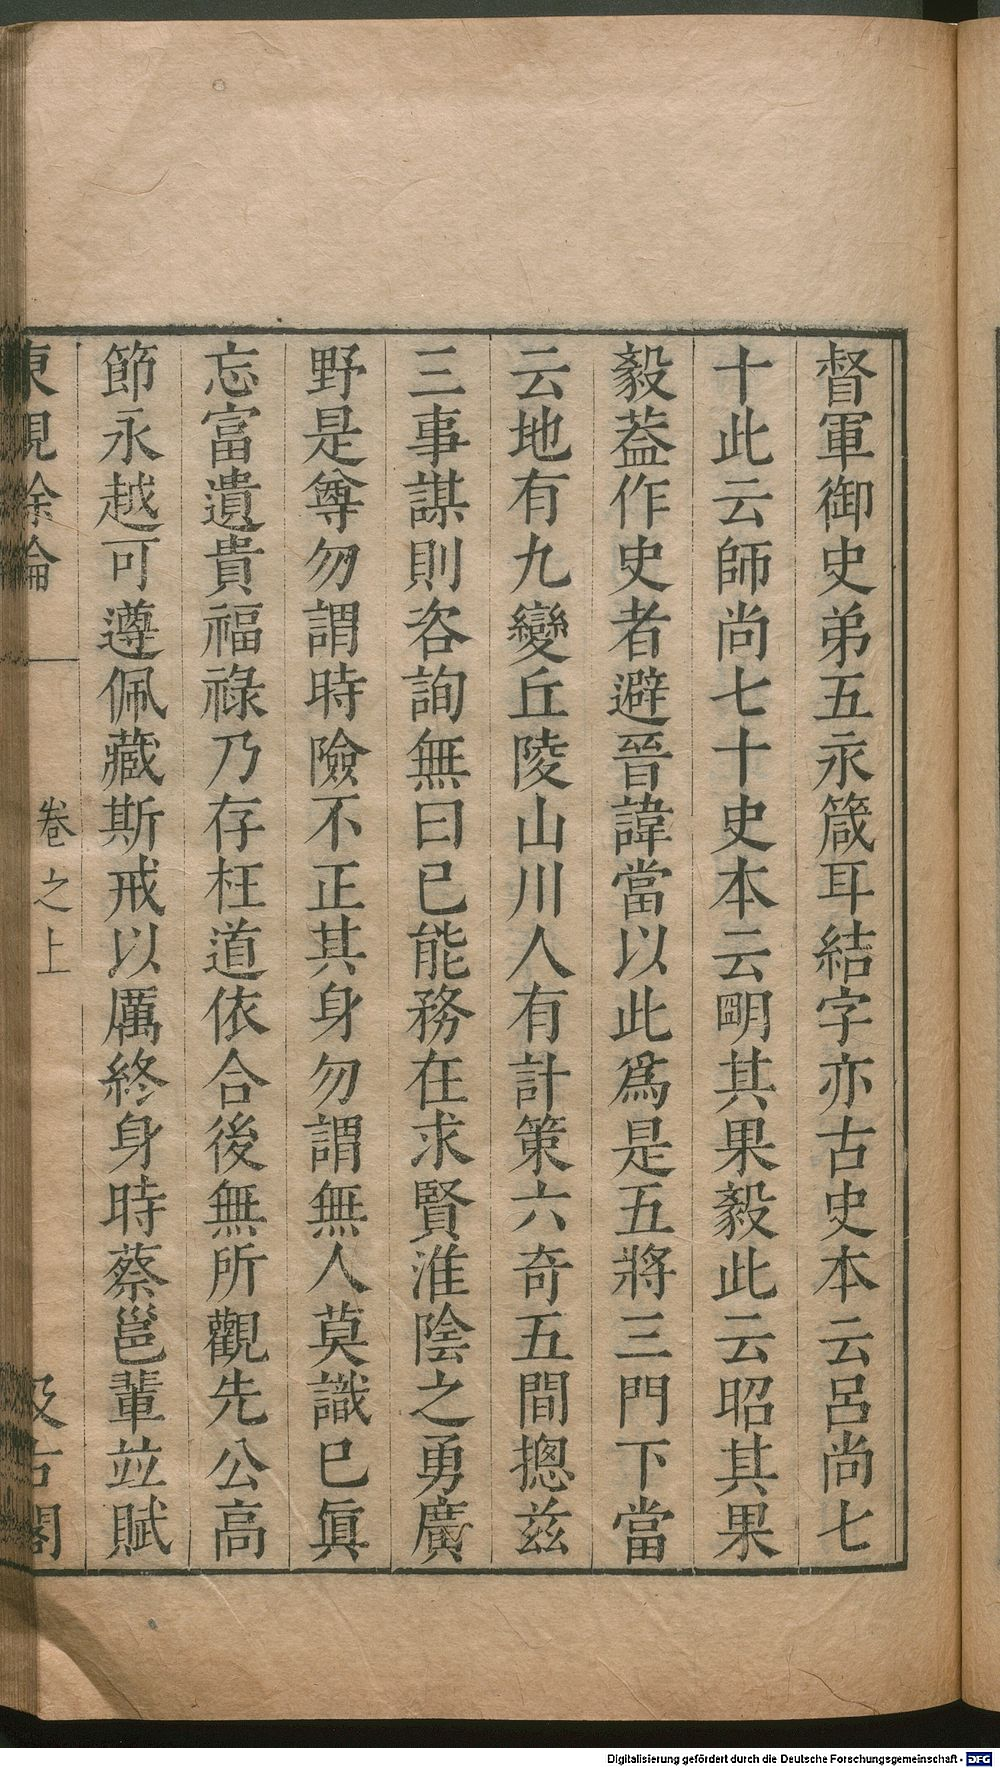 督軍御史弟五永箴耳結字亦古史本云呂尚七
十此云師尚七十史本云朙其果毅此云昭其果
毅葢作史者避晉諱當以此爲是五將三門下當
云地有九變丘陵山川人有計策六奇五間揔茲
三事謀則咨詢無曰已能務在求賢淮陰之勇廣
野是尊勿謂時險不正其身勿謂無人莫識已眞
忘富遺貴福祿乃存枉道依合後無所觀先公高
節永越可遵佩藏斯戒以厲終身時蔡邕輩並賦
東觀餘論 卷之上 汲古閣
Digitalisierung gefördert durch die Deutsche Forschungsgemeinschaft - DFG